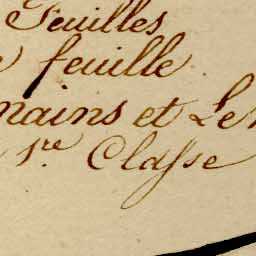 Feuilles
feuille
mains et Le
1re Classe